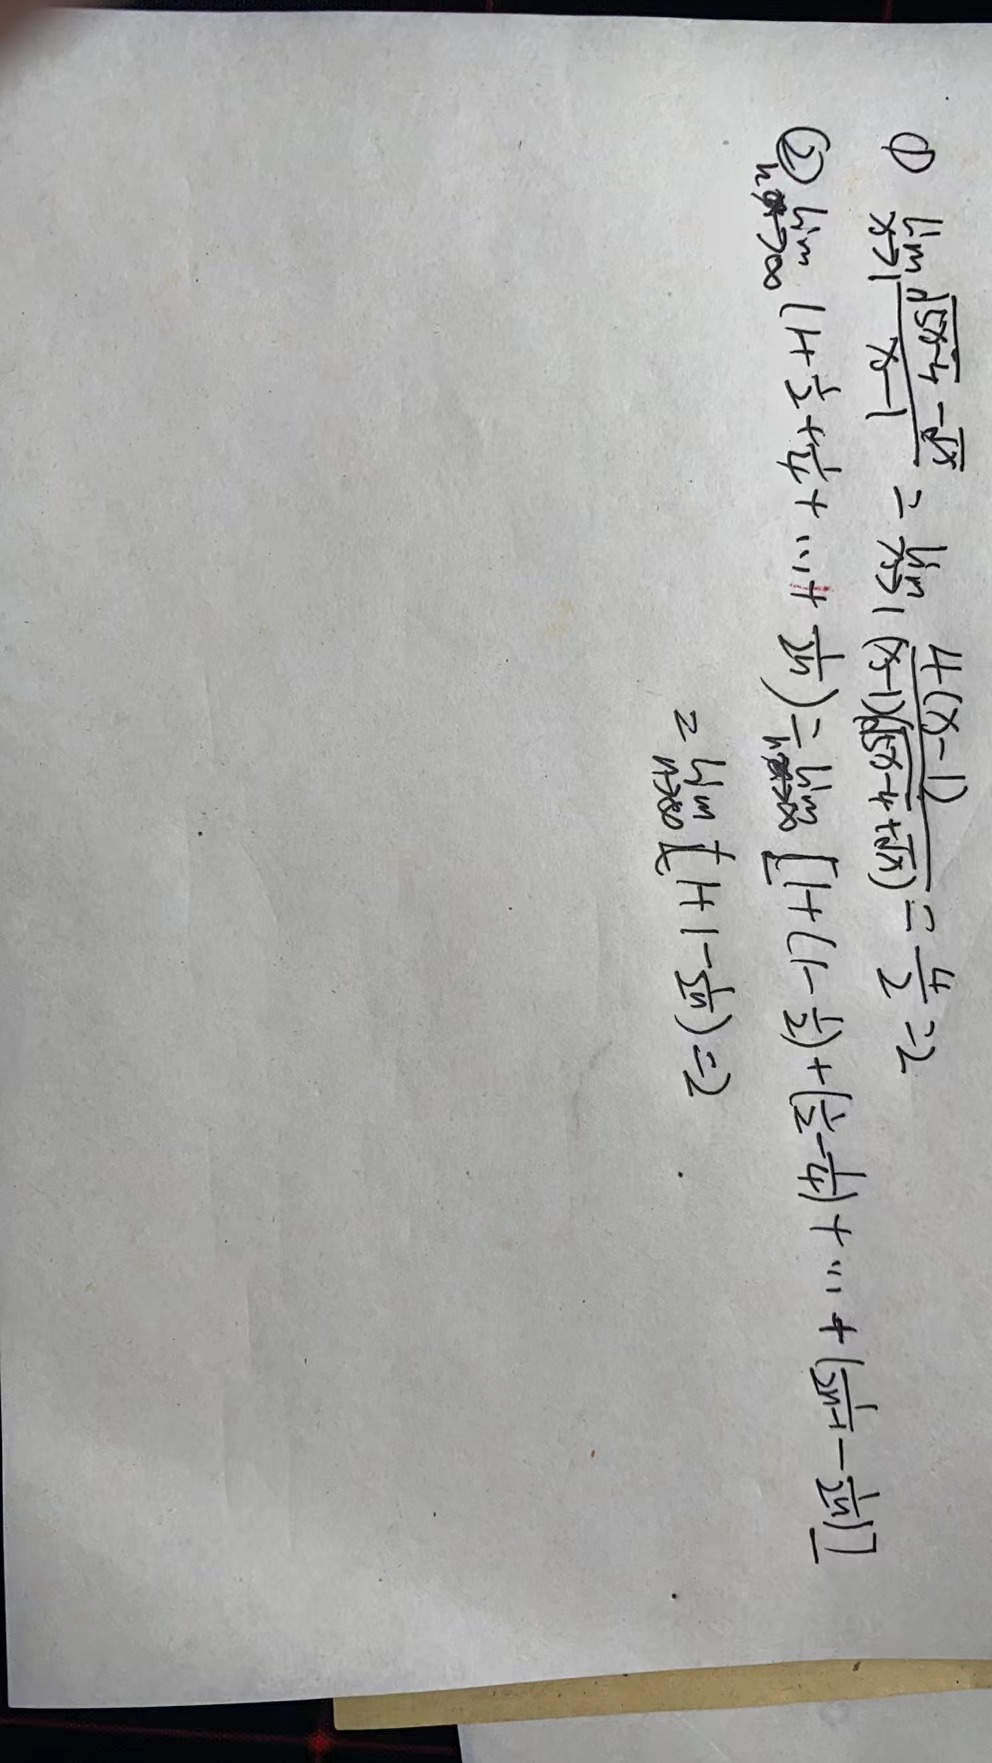 ① lim x→1 (√(5x-4) - √x)/(x-1) = lim x→1 4(x-1)/((x-1)(√(5x-4)+√x)) = 4/2 = 2
(2) lim n→∞ (1+1/2+1/4+…+1/2ⁿ) = lim n→∞ [1+(1-1/2)+(1/2-1/4)+…+(1/2ⁿ⁻¹-1/2ⁿ)]
= lim n→∞ (1+1-1/2ⁿ) = 2